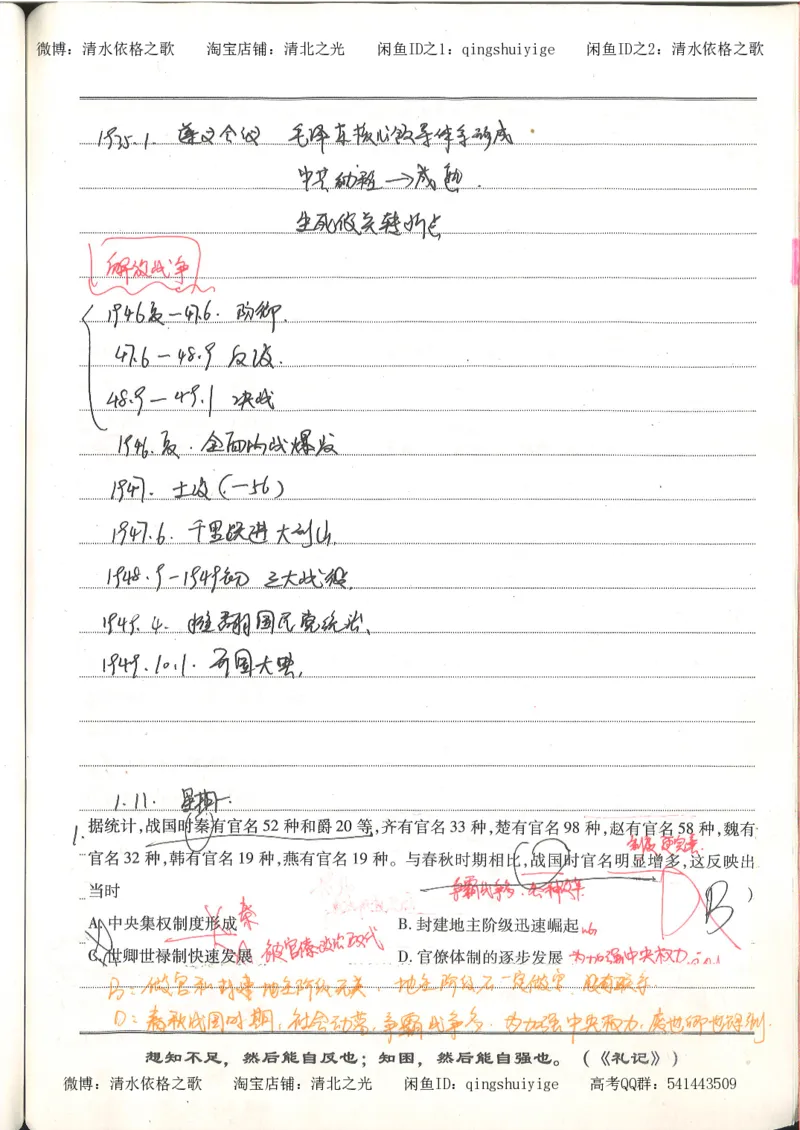 微博：清水依格之歌　淘宝店铺：清北之光　闲鱼ID之1：qingshuiyige　闲鱼ID之2：清水依格之歌
1935.1. 遵义会议 毛泽东核心领导体系形成
中共幼稚→成熟.
生死攸关转折点
解放战争
1946夏—47.6. 防御.
47.6—48.9 反攻.
48.9—49.1 决战
1946.夏. 全面内战爆发
1947. 土改(—56)
1947.6. 千里跃进大别山.
1948.9-1949初 三大战役.
1949.4. 推翻国民党统治.
1949.10.1. 开国大典.
1.11. 星期一.
1. 据统计,战国时秦有官名52种和爵20等,齐有官名33种,楚有官名98种,赵有官名58种,魏有
官名32种,韩有官名19种,燕有官名19种。与春秋时期相比,战国时官名明显增多,这反映出
当时 ）
争霸战争
B
D
A. 中央集权制度形成 秦
B. 封建地主阶级迅速崛起
C. 世卿世禄制快速发展 被官僚政治取代
D. 官僚体制的逐步发展 为加强中央权力
B：做官和封建地主阶级无关. 地主阶级不一定做官. 没有联系
D：春秋战国时期,社会动荡,争霸战争多. 为加强中央权力,废世卿世禄制.
想知不足，然后能自反也；知困，然后能自强也。（《礼记》）
微博：清水依格之歌　淘宝店铺：清北之光　闲鱼ID：qingshuiyige　高考QQ群：541443509